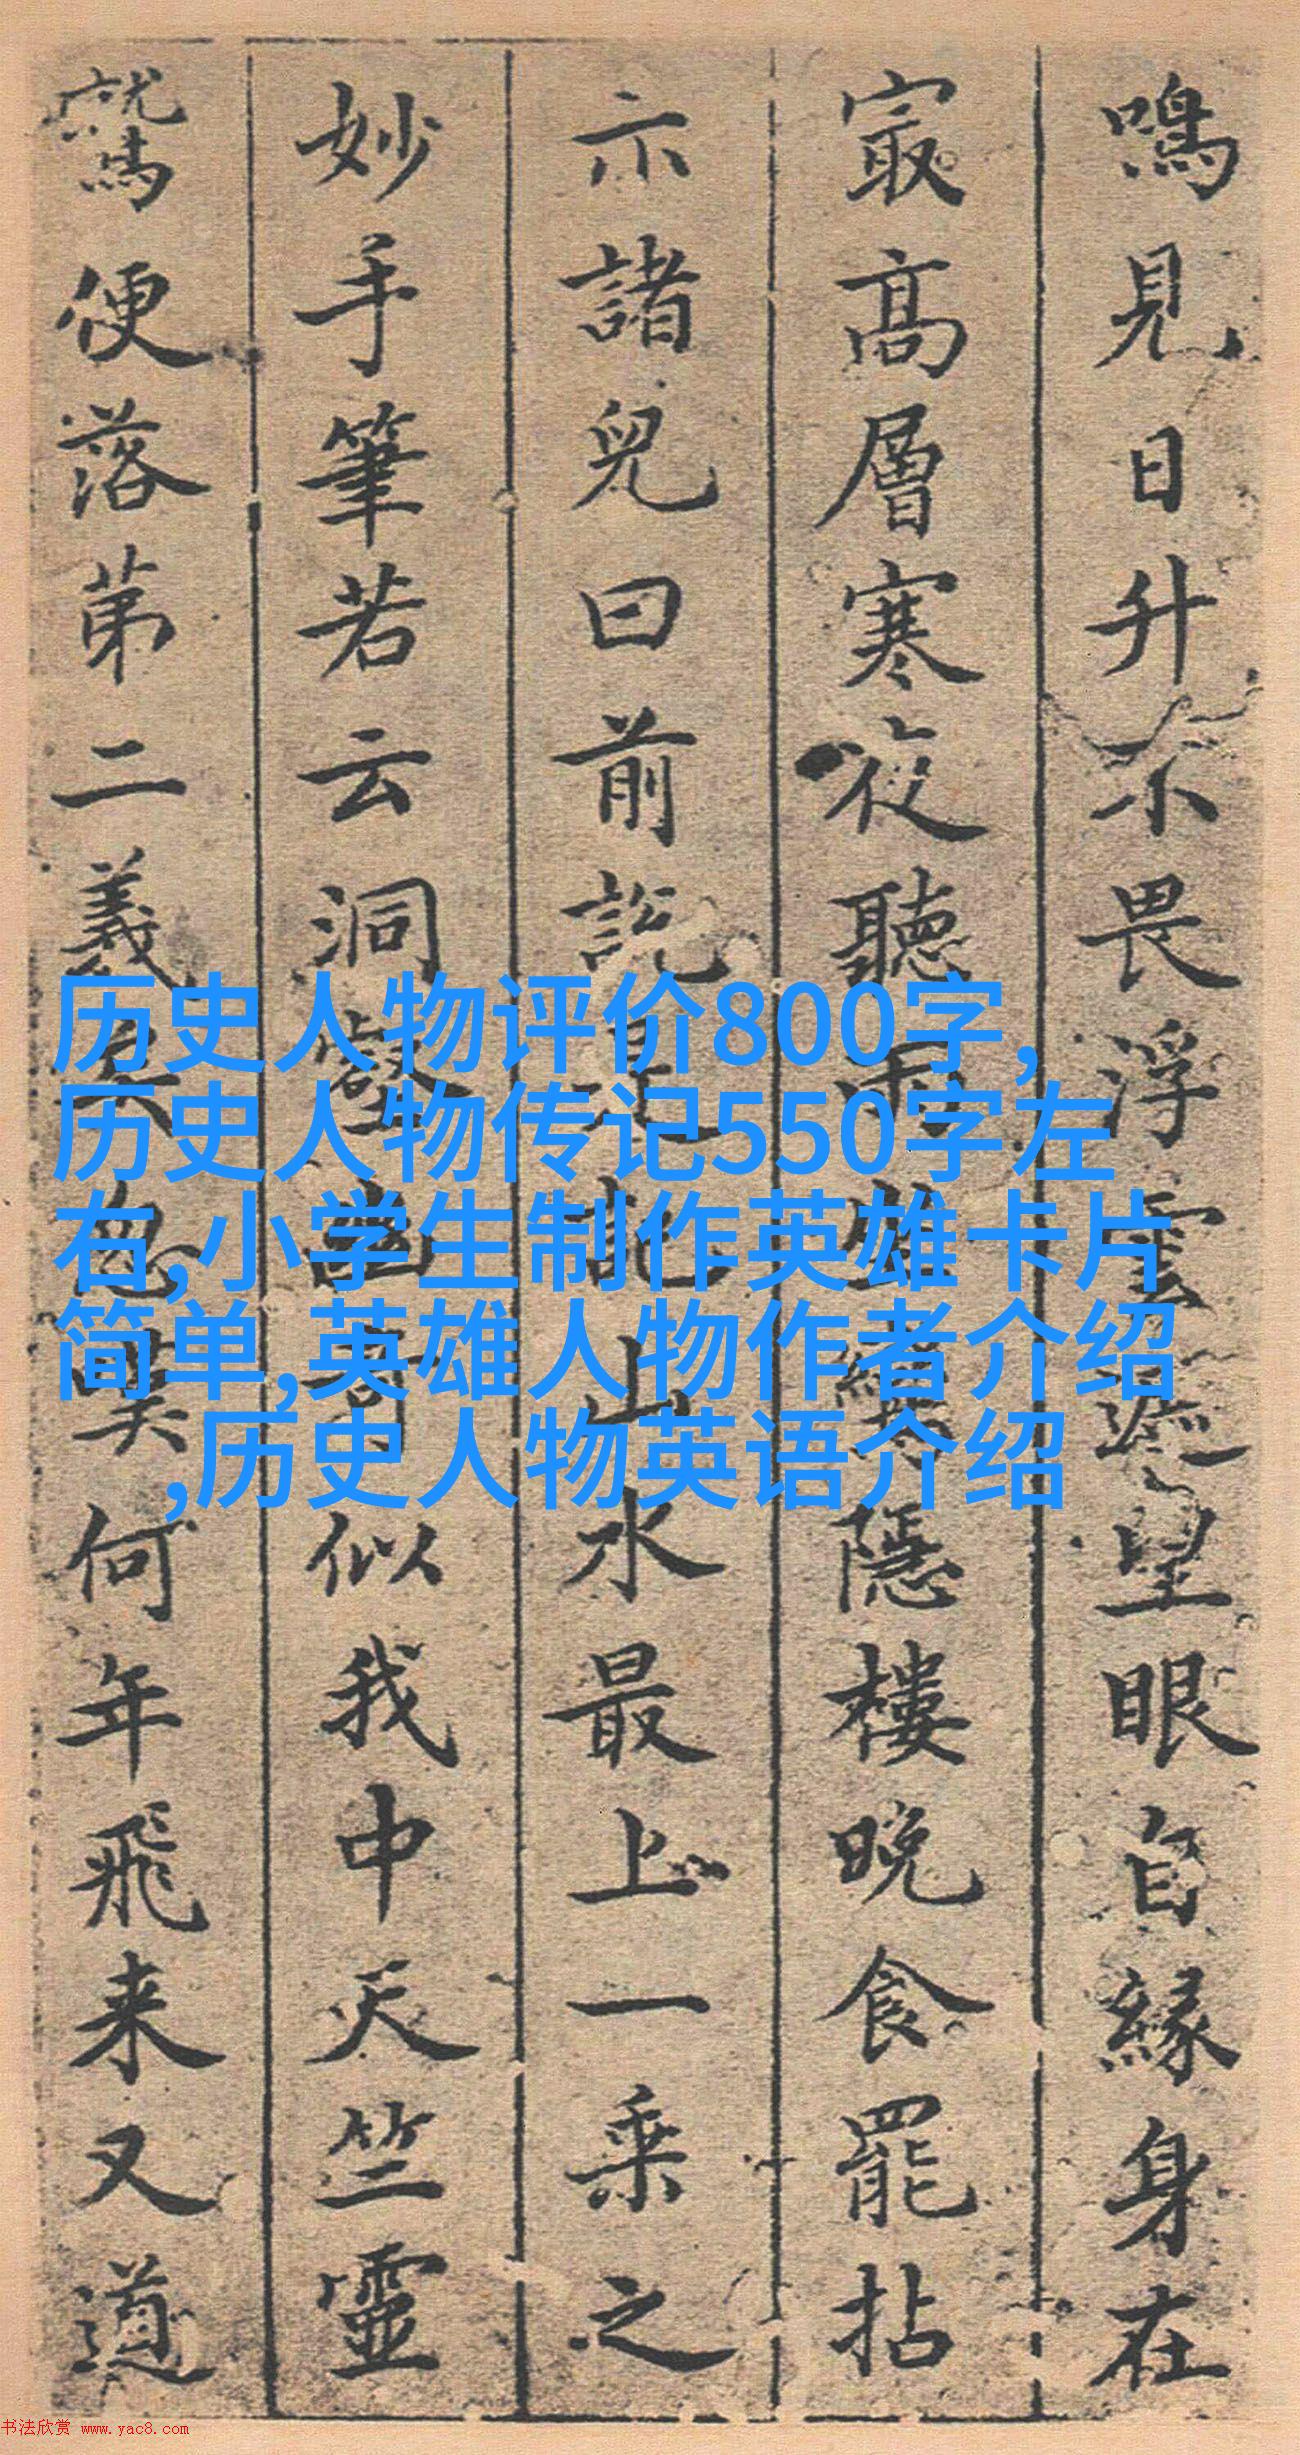 鳴見日升不畏浮雲遮望眼自緣身在
冣高層寒夜聽雨隱樓晚食罷拈
示諸兒曰前説是此山水最上一乗之
妙手筆若云洞壑幽奇似我中天竺靈
鷲便落苐二義矣何年飛来又道
历史人物评价800字,
历史人物传记550字左
右,小学生制作英雄卡片
简单,英雄人物作者介绍
,历史人物英语介绍
书法欣赏 www.yac8.com